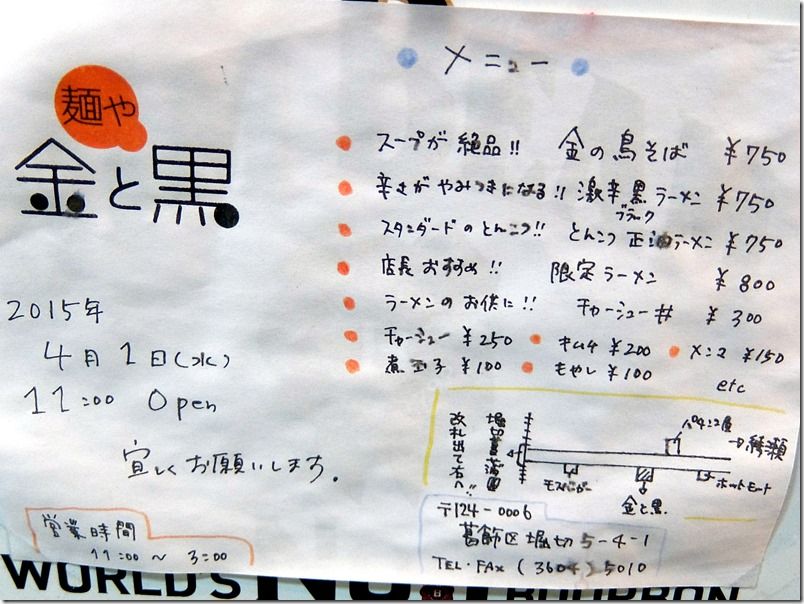 メニュー
麺や
金と黒
スープが絶品!! 金の鳥そば ¥750
辛さがやみつきになる!! 激辛黒ラーメン ¥750
ブラック
スタンダードのとんこつ!! とんこつ正油ラーメン ¥750
店長おすすめ!! 限定ラーメン ¥800
ラーメンのお供に!! チャーシュー丼 ¥300
チャーシュー ¥250 キムチ ¥200 メンマ ¥150
煮玉子 ¥100 もやし ¥100
etc
2015年
4月1日(水)
11:00 Open
宜しくお願いします。
営業時間
11:00 〜 3:00
堀切菖蒲園
改札出て右へ!!
パチンコ屋
→綾瀬
モスバーガー
金と黒
ホットモート
〒124-0006
葛飾区堀切5-4-1
TEL・FAX (3604)5010
WORLD'S No.1 BOURBON